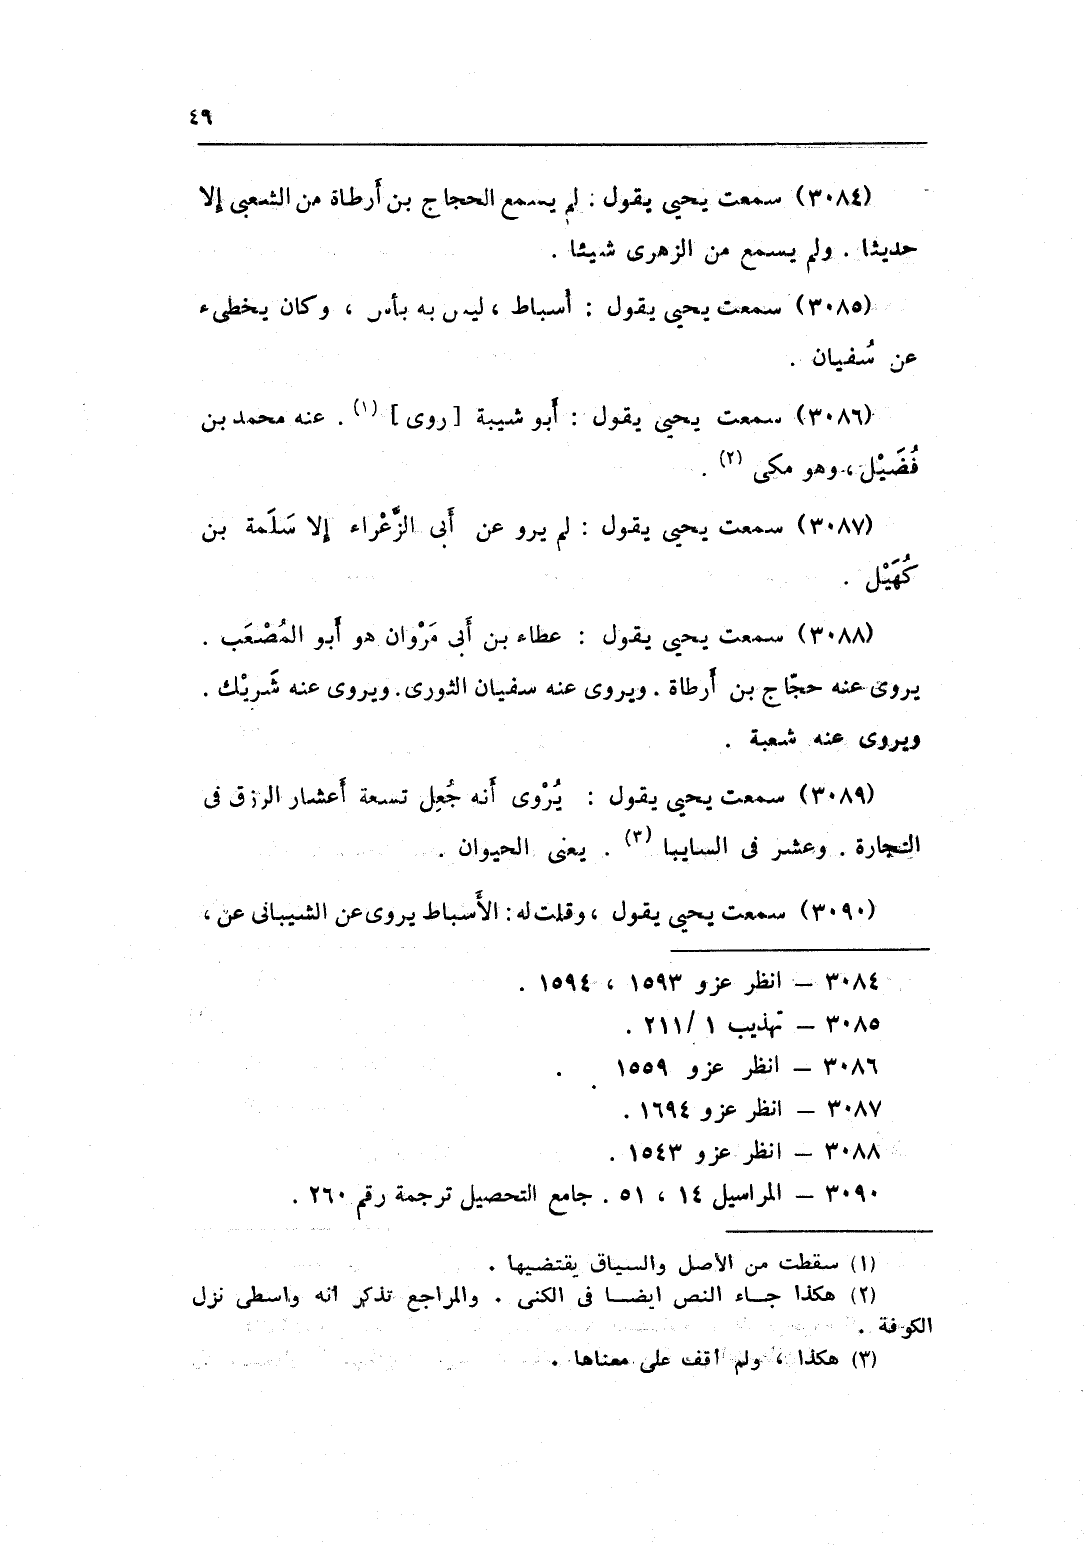 ٤٩
(٣٠٨٤) سمعت يحيى يقول : لم يسمع الحجاج بن أَرطاة من الشعبى إلا
حديثا . ولم يسمع من الزهرى شيئا .
(٣٠٨٥) سمعت يحيى يقول : أَسباط ، ليس به بأس ، وكان يخطىء
عن سُفيان .
(٣٠٨٦) سمعت يحيى يقول : أَبو شيبة [ روى ] (١) . عنه محمد بن
فُضَيْل ، وهو مكى (٢) .
(٣٠٨٧) سمعت يحيى يقول : لم يرو عن أَبى الزَّعْراء إلا سَلَمة بن
كُهَيْل .
(٣٠٨٨) سمعت يحيى يقول : عطاء بن أَبى مَرْوان هو أَبو المُصْعَب .
يروى عنه حجّاج بن أَرطاة . ويروى عنه سفيان الثورى . ويروى عنه شَريْك .
ويروى عنه شعبة .
(٣٠٨٩) سمعت يحيى يقول : يُرْوى أَنه جُعِل تسعة أَعشار الرزق فى
التجارة . وعشر فى السابيا (٣) . يعنى الحيوان .
(٣٠٩٠) سمعت يحيى يقول ، وقلت له : الأَسباط يروى عن الشيبانى عن ،
٣٠٨٤ – انظر عزو ١٥٩٣ ، ١٥٩٤ .
٣٠٨٥ – تهذيب ١ /٢١١ .
٣٠٨٦ – انظر عزو ١٥٥٩ .
٣٠٨٧ – انظر عزو ١٦٩٤ .
٣٠٨٨ – انظر عزو ١٥٤٣ .
٣٠٩٠ – المراسيل ١٤ ، ٥١ . جامع التحصيل ترجمة رقم ٢٦٠ .
(١) سقطت من الأصل والسياق يقتضيها .
(٢) هكذا جاء النص ايضا فى الكنى . والمراجع تذكر انه واسطى نزل
الكوفة .
(٣) هكذا ، ولم اقف على معناها .